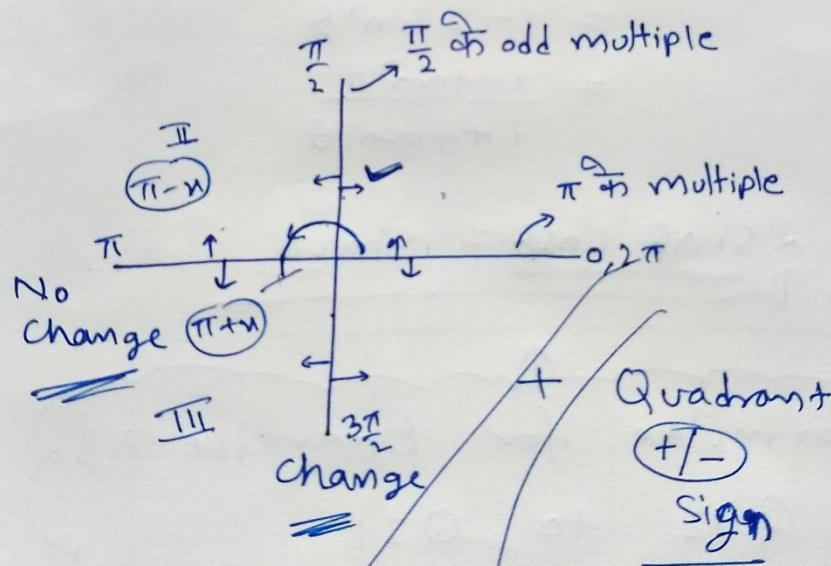 π/2
π/2 के odd multiple
II
π-x
π के multiple
π
0, 2π
No
change
π+x
III
3π/2
change
+
Quadrant
+/-
Sign